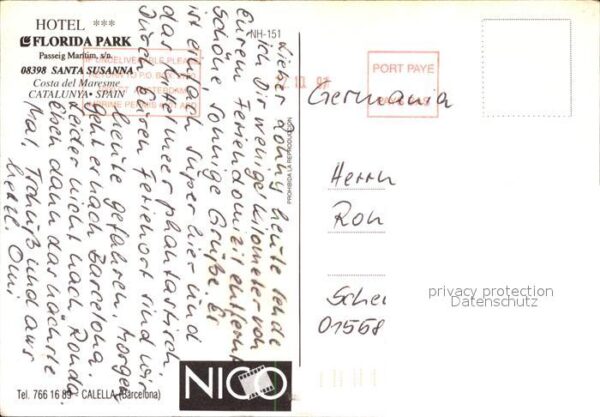 HOTEL ***
FLORIDA PARK
Passeig Marítim, s/n.
08398 SANTA SUSANNA
Costa del Maresme
CATALUNYA • SPAIN
NH-151
Lieber Ronny heute sende
ich Dir wenige Kilometer von
Eurem Feriendomizil entfernt
schöne sonnige Grüße. Es
ist einfach super hier und
das Mittelmeer phantastisch.
Durch Euren Ferienort sind wir
heute gefahren. Morgen
geht es nach Barcelona.
Leider nicht nach Ronda.
Eben dann das nächste
Mal. Tschüß und aus
Omi
PROHIBIDA LA REPRODUCCION
IF UNDELIVERABLE PLEASE
PORT PAYE
Germania
Herrn
Ron
Schei
01568
privacy protection
Datenschutz
NICO
Tel. 766 16 89 - CALELLA (Barcelona)